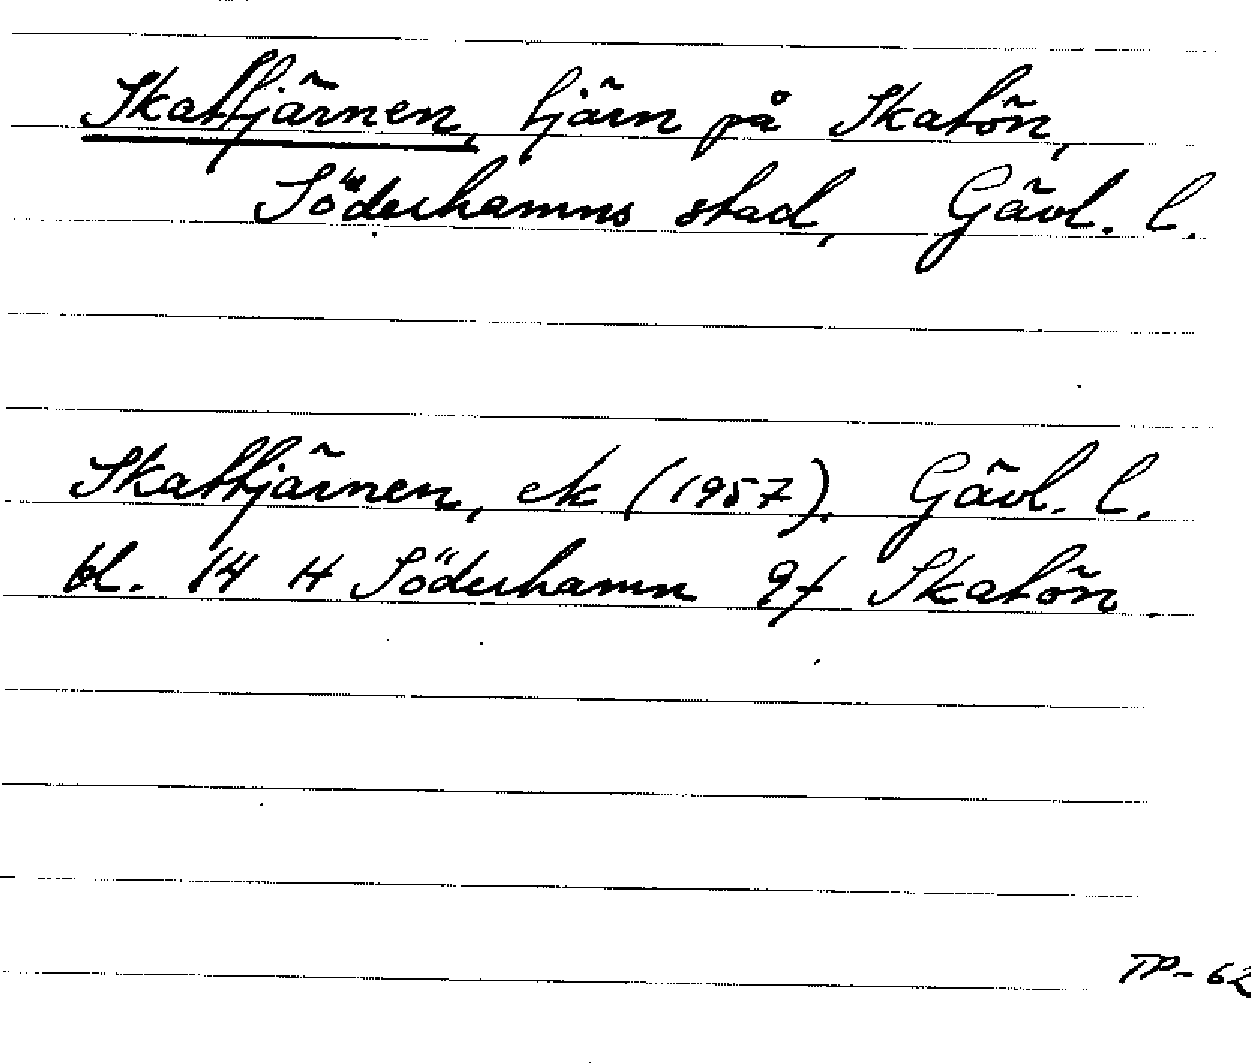 Skattjärnen, tjärn på Skatön,
Söderhamns stad, Gävl. l.
Skattjärnen, ek (1957). Gävl. l.
bl. 14 H Söderhamn 9f Skatön.
TP-62